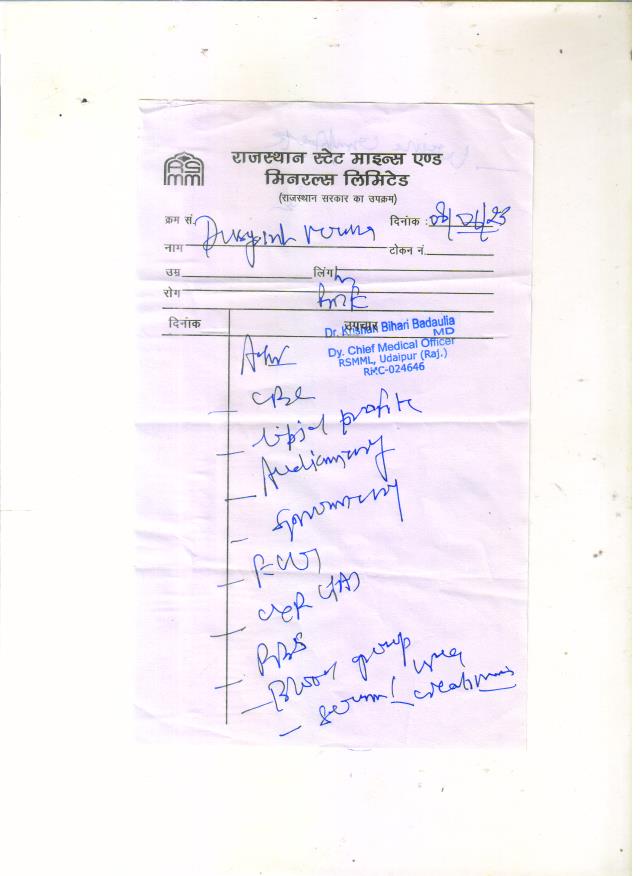 RS
MM
राजस्थान स्टेट माइन्स एण्ड
मिनरल्स लिमिटेड
(राजस्थान सरकार का उपक्रम)
क्रम सं. दिनांक : 08/01/23
नाम टोकन नं.
उम्र लिंग
रोग
दिनांक उपचार
Dr. Krishan Bihari Badaulia
MD
Dy. Chief Medical Officer
RSMML, Udaipur (Raj.)
RMC-024646
Adv
CBC
Lipid profile
Audiometry
Spirometry
ECG
CXR (PA)
RBS
Blood group
Serum urea creatinine